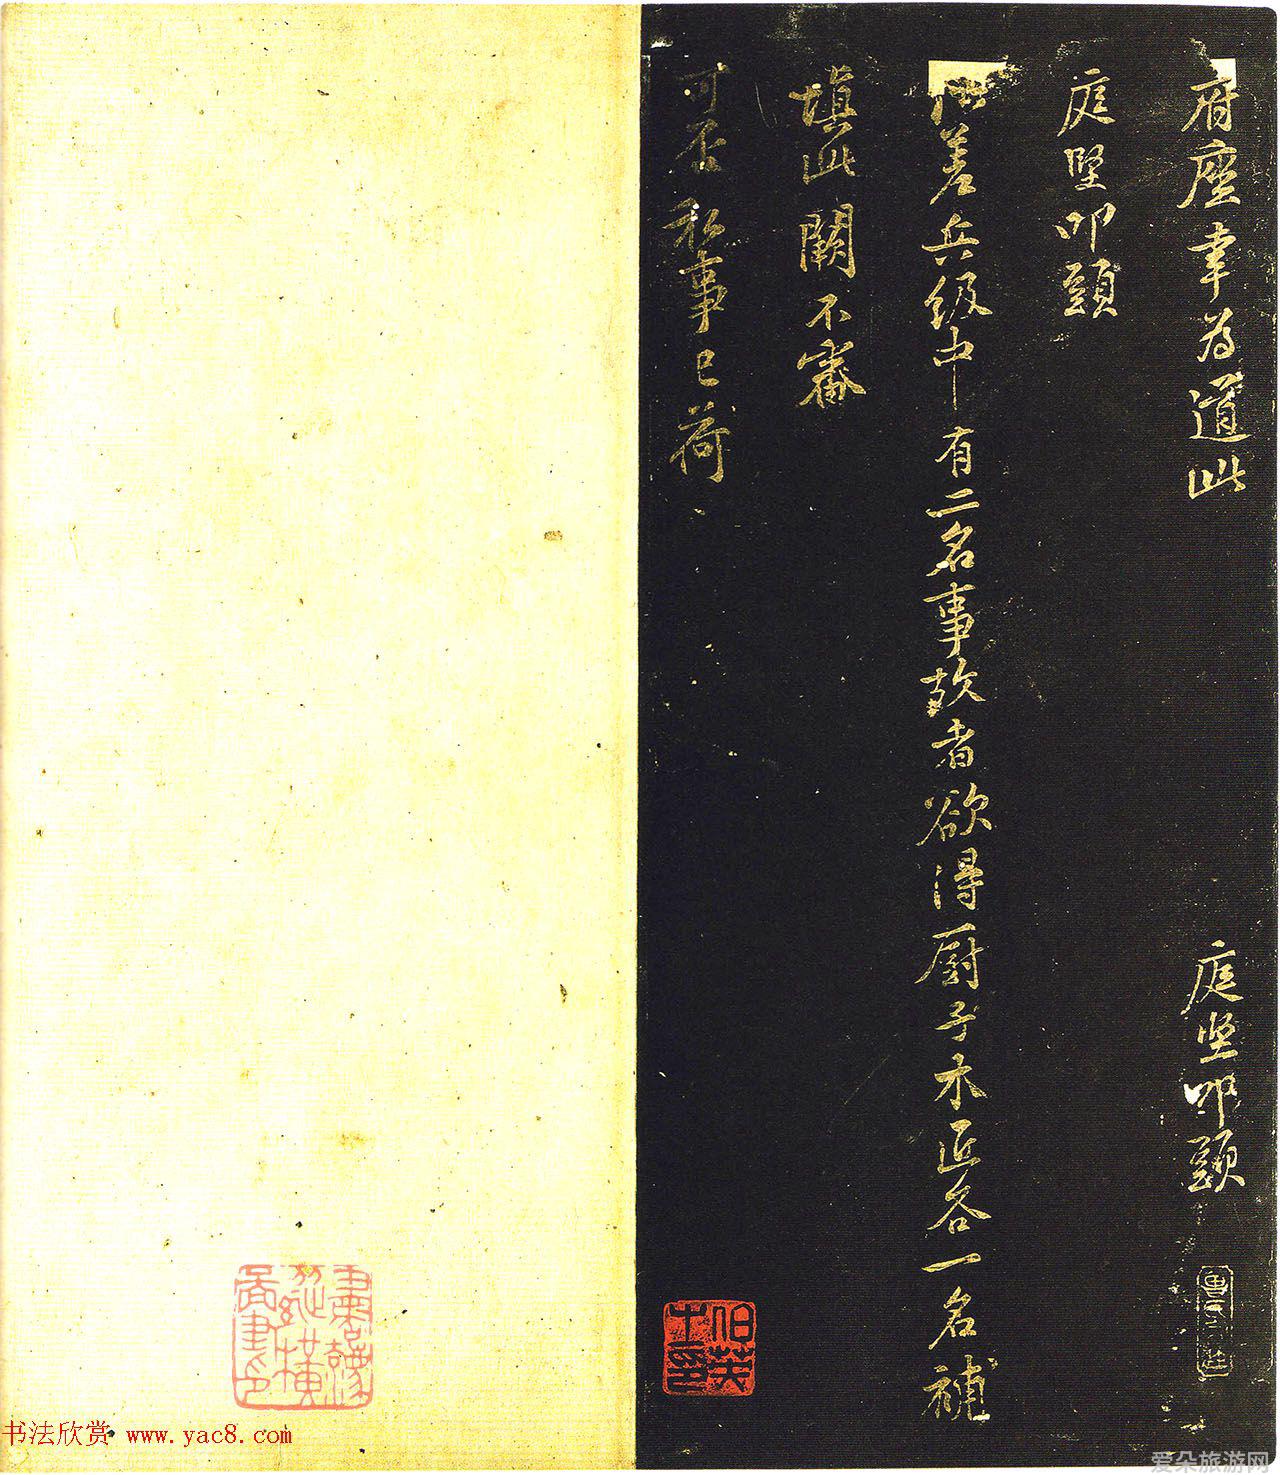 府座幸為道此 庭堅叩頭
庭堅叩頭
差兵級中有二名事故者欲得厨子木匠各一名補
填此闕不審
可否私事已荷
伯英
书法欣赏 www.yac8.com
爱朵旅游网